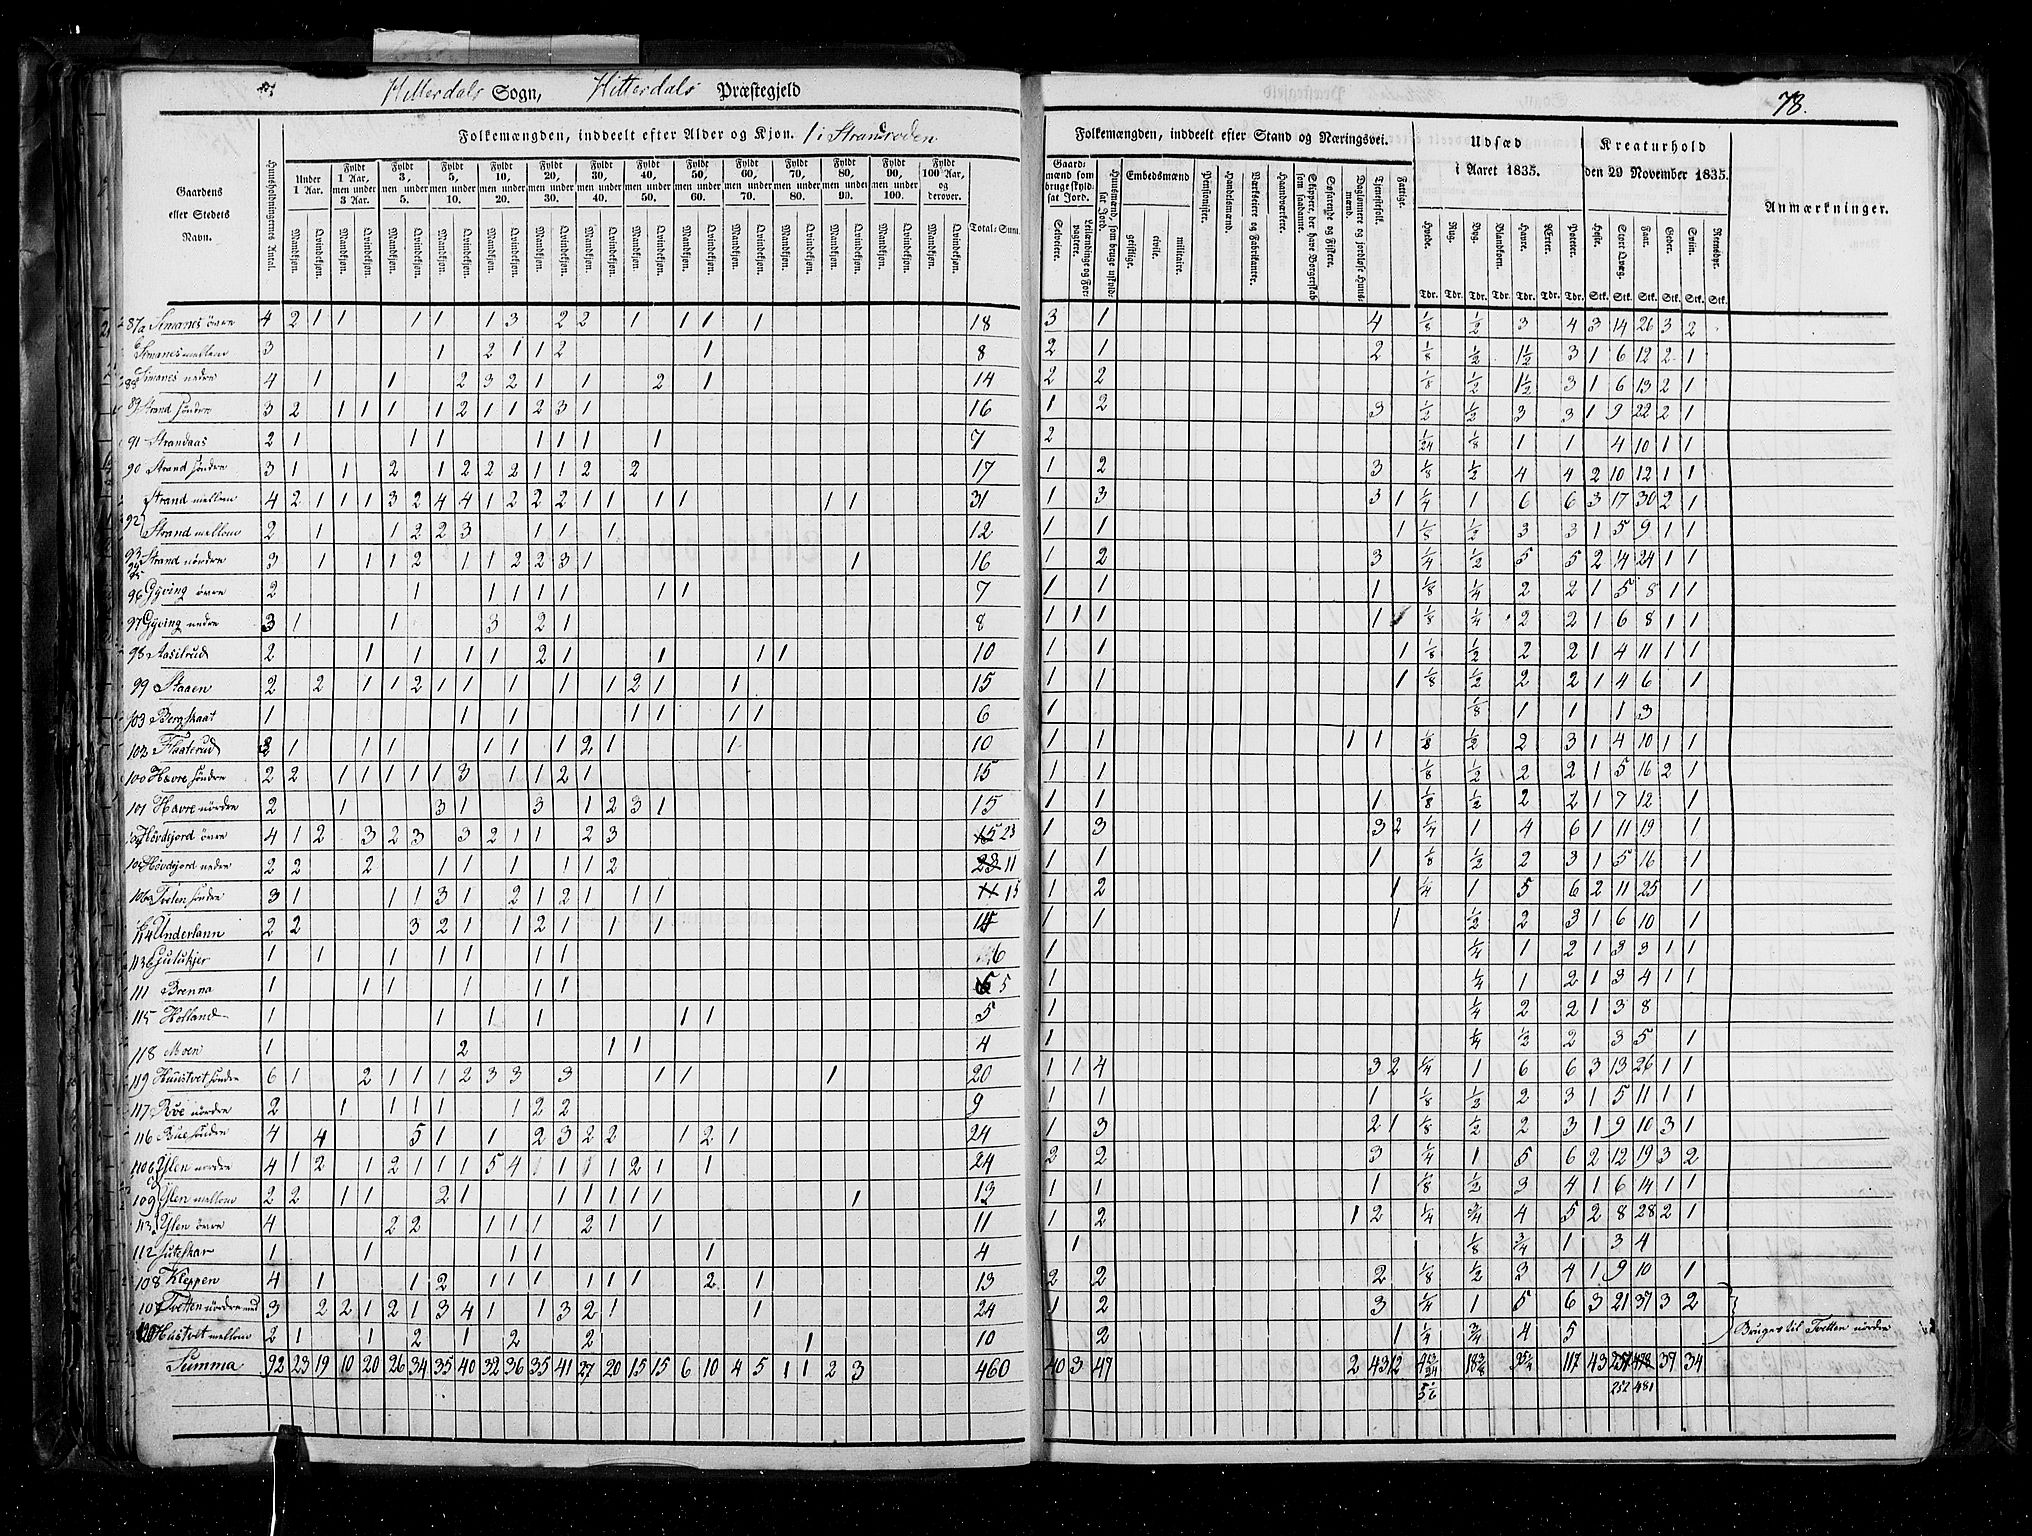 Hitterdals Sogn, Hitterdals Præstegjeld
78.
Folkemængden, inddeelt efter Alder og Kjøn. i Strandroden
Folkemængden, inddeelt efter Stand og Næringsvei.
Udsæd i Aaret 1835.
Kreaturhold den 29 November 1835.
Anmærkninger.
Gaardens eller Stedets Navn.
Huusholdningernes Antal.
Under 1 Aar.
Fyldt 1 Aar, men under 3 Aar.
Fyldt 3, men under 5.
Fyldt 5, men under 10.
Fyldt 10, men under 20.
Fyldt 20, men under 30.
Fyldt 30, men under 40.
Fyldt 40, men under 50.
Fyldt 50, men under 60.
Fyldt 60, men under 70.
Fyldt 70, men under 80.
Fyldt 80, men under 90.
Fyldt 90, men under 100.
Fyldt 100 Aar, og derover.
Mandkjøn. Qvindekjøn.
Total-Sum.
Gaardmænd som bruge skyldsat Jord.
Selveiere.
Leilændinge og Forpagtere.
Huusmænd, som bruge uskyldsat Jord.
Embedsmænd
geistlige. civile. militaire.
Pensionister.
Handelsmænd.
Værkeiere og Fabrikanter.
Haandværkere.
Skippere, der have Borgerskab som saadanne.
Søfarende og Fiskere.
Daglønnere og jordløse Huusmænd.
Tjenestefolk.
Fattige.
Hvede. Rug. Byg. Blandkorn. Havre. Ærter. Poteter.
Heste. Stort Qvæg. Faar. Geder. Sviin. Reensdyr.
Tdr. Tdr. Tdr. Tdr. Tdr. Tdr. Tdr. Stk. Stk. Stk. Stk. Stk. Stk.
87a Simanes øvre 4 2 1 1 1 1 1 3 2 2 1 1 1 1 18 3 1 4 1/8 1/2 3 4 3 14 26 3 2
Simanes mellem 3 1 2 1 1 2 1 8 2 1 2 1/8 1/2 1 1/2 3 1 6 12 2 1
88 Simanes nedre 4 1 1 2 3 2 1 1 2 1 14 2 2 1/8 1/2 1 1/2 3 1 6 13 2 1
89 Strand søndre 3 2 1 1 1 1 2 1 1 2 3 1 16 1 2 3 1/2 1/2 3 3 1 9 22 2 1
91 Strandaas 2 1 1 1 1 1 1 1 7 2 1/24 1/8 1 1 4 10 1 1
90 Strand søndre 3 1 1 2 1 2 2 2 1 1 2 2 17 1 2 3 1/8 1/2 4 4 2 10 12 1 1
Strand mellem 4 2 1 1 1 3 2 4 4 1 2 2 2 1 1 1 1 1 1 31 1 3 3 1 1/4 1 6 6 3 17 30 2 1
92 Strand mellem 2 1 1 2 2 3 1 1 1 12 1 1 1 1/8 1/2 3 3 1 5 9 1 1
93 94 95 Strand nørdre 3 1 1 1 2 1 1 2 2 3 1 1 16 1 2 3 1/4 1/2 5 5 2 14 24 1 1
96 Gyving øvre 2 1 1 1 1 1 1 1 7 1 1 1 1/8 1/4 2 2 1 5 8 1 1
97 Gyving nedre 3 1 1 3 2 1 8 1 1 1 1 1/8 1/4 2 2 1 6 8 1 1
98 Aasilrud 2 1 1 1 1 2 1 1 1 1 10 1 1 1 1/8 1/2 2 2 1 4 11 1 1
99 Staaen 2 2 1 1 2 1 1 1 1 1 2 1 1 15 1 1 1 1/8 1/2 2 2 1 4 6 1
103 Bergskaat 1 1 1 1 1 1 1 6 1/8 1 1 1 3
102 Flaaterud 2 1 1 1 1 1 1 1 2 1 1 10 1 1 1 1 1/8 1/2 2 3 1 4 10 1 1
100 Hævre søndre 2 2 1 1 1 1 1 3 1 1 2 1 15 1 1 1/8 1/2 2 2 1 5 16 2 1
101 Havre nørdre 2 1 3 1 3 1 2 3 1 15 1 1 1 1/8 1/2 2 2 1 7 12 1
Hovdejord øvre 4 1 2 3 2 3 3 2 1 1 2 3 23 1 3 3 2 1/4 1 4 6 1 11 19 1
Hovdejord nedre 2 2 2 1 1 1 1 1 1 2 11 1 1 1 1/8 1/2 2 3 1 5 16 1
106a Tveten søndre 3 1 1 1 3 1 2 1 2 1 1 1 15 1 2 1 1/4 1 5 6 2 11 25 1
114 Underlann 2 2 3 2 1 1 2 1 1 1 14 1 1 1 1/2 2 3 1 6 10 1
113 Gulukjer 1 1 1 1 1 1 1 6 1 1/4 1 2 1 3 3 1 1
111 Brenna 1 1 1 1 1 1 5 1 1/4 1 2 1 3 4 1 1
115 Holland 1 1 1 1 1 1 5 1 1/4 2 2 1 3 8
118 Moen 1 2 1 1 4 1 1/4 1/2 2 3 5 1
119 Hunstvet søndre 6 1 2 1 1 1 2 3 3 3 1 1 1 20 1 1 4 3 2 1/4 1 6 6 3 13 26 1 1
117 Røe nørdre 2 1 1 1 1 1 2 2 9 1 1 1 1/8 1/2 2 3 1 5 11 1 1
116 Rue søndre 4 4 5 1 1 2 3 2 2 1 2 1 24 1 3 2 1 1/8 1/2 2 3 1 9 10 3 1
110 Ylen nørdre 4 1 2 1 2 1 1 1 5 4 1 1 1 1 2 1 1 24 2 2 3 1/4 1 5 6 2 12 19 3 2
109 Ylen mellem 2 2 1 1 2 1 1 1 1 1 1 1 13 1 1 1 1/8 1/2 3 4 1 6 14 1 1
113 Ylen øvre 4 2 2 1 1 1 2 1 1 11 1 2 1 2 1/4 3/4 4 5 2 8 28 2 1
112 Juteskar 1 1 1 1 1 4 1 1/8 3/4 1 3 4
108 Kleppen 4 1 1 2 1 1 1 1 1 1 2 1 13 2 2 2 1/8 1/2 3 4 1 9 10 1
107 Tvetten nørdre med 3 2 2 1 2 1 3 4 1 1 3 2 1 1 24 1 2 3 1/4 1 5 6 3 21 37 3 2
120 Hustvet mellem 2 1 1 2 1 2 2 1 10 2 1 1/4 3/4 4 5
Bruges til Tvetten nørdre
Summa 92 23 19 10 20 26 34 35 40 32 36 35 41 27 20 15 15 6 10 4 5 1 1 2 3 460 40 3 47 2 43 12 117 43 37 34
252 481